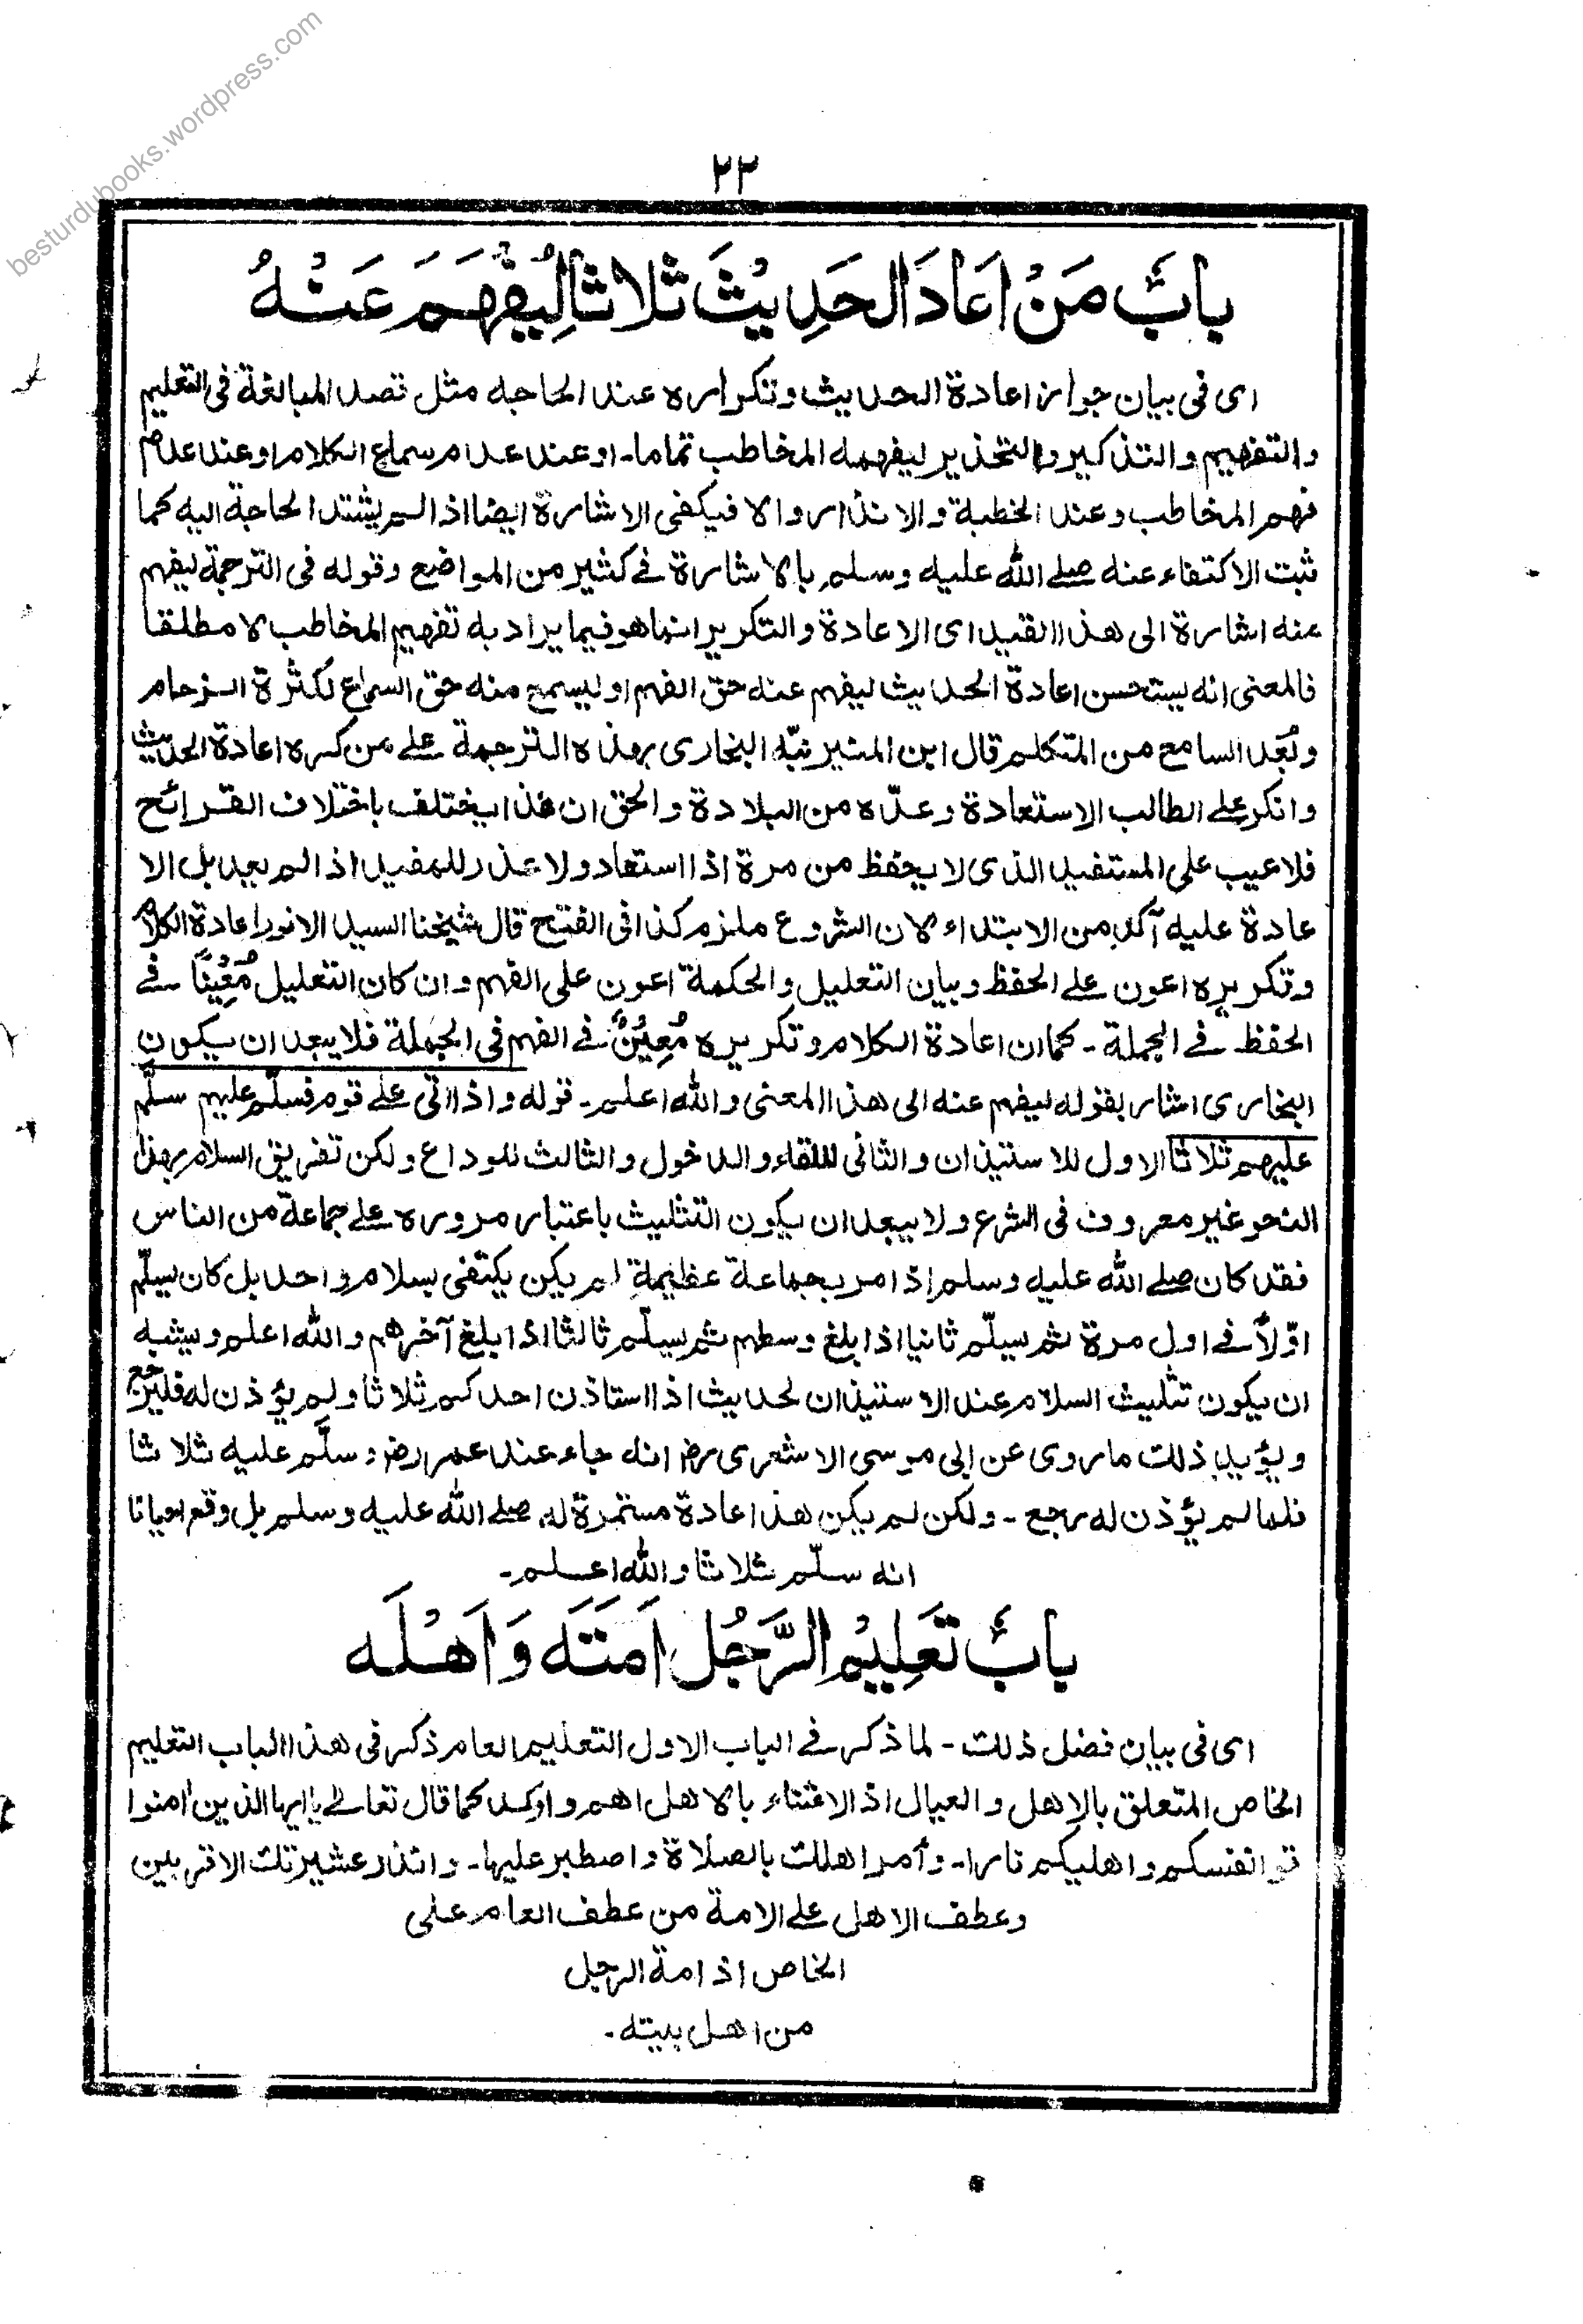 besturdubooks.wordpress.com
٢٣
بابٌ مَنْ اَعَادَ الحَدِيْثَ ثلاثا لِيُفْهَمَ عَنْهُ
اى فى بيان جواز اعادة الحديث وتكراره عند الحاجه مثل قصد المبالغة فى التعليم
والتفهيم والتذكير والتحذير ليفهمه المخاطب تماما۔ او عند عدام سماع الكلام او عند عدم
فهم المخاطب وعند الخطبة والانذار والا فيكفى الاشارة ايضا اذا لم يشتد الحاجة اليه كما
ثبت الاكتفاء عنه صلے الله عليه وسلم بالاشارة فے كثير من المواضع وقوله فى الترجمة ليفهم
عنه اشارة الى هذا القيد اى الاعادة والتكرير انما هو فيما يراد به تفهيم المخاطب لا مطلقا
فالمعنى انه يستحسن اعادة الحديث ليفهم عنه حق الفهم او ليسمع منه حق السماع لكثرة الزحام
وبُعد السامع من المتكلم قال ابن المنير نبّه البخارى بهذه الترجمة علے من كره اعادة الحديث
وانكر علے الطالب الاستعادة وعدّه من البلادة والحق ان هذا يختلف باختلاف القرائح
فلا عيب على المستفيد الذى لا يحفظ من مرة اذا استعاد ولا عذر للمفيد اذا لم يعد بل الا
عادة عليه آكد من الابتداء لان الشروع ملزم كذا فى الفتح قال شيخنا السيد الانور اعادة الكلام
وتكريره اعون علے الحفظ وبيان التعليل والحكمة اعون على الفهم وان كان التعليل مُعِيْنًا فے
الحفظ فے الجملة۔ كما ان اعادة الكلام وتكريره مُعِيْنٌ فے الفهم فى الجملة فلا يبعد ان يكون
البخارى اشار بقوله ليفهم عنه الى هذا المعنى والله اعلم۔ قوله واذا اتى علے قوم فسلّم عليهم سلّم
عليهم ثلاثا الاول للاستيذان والثانى للقاء والدخول والثالث للوداع ولكن تفريق السلام بهذا
النحو غير معروف فى الشرع ولا يبعد ان يكون التثليث باعتبار مروره علے جماعة من الناس
فقد كان صلے الله عليه وسلم اذا مر بجماعة عظيمةٍ لم يكن يكتفى بسلام واحد بل كان يسلّم
اوّلاً فے اول مرة ثم يسلّم ثانيا اذا بلغ وسطهم ثم يسلّم ثالثا اذا بلغ آخرهم والله اعلم ويشبه
ان يكون تثليث السلام عند الاستيذان لحديث اذا استاذن احدكم ثلاثا ولم يؤذن له فليرجع
ويؤيد ذلك ما روى عن ابى موسى الاشعرى رض انه جاء عند عمر رض وسلّم عليه ثلاثا
فلما لم يؤذن له رجع۔ ولكن لم يكن هذا عادة مستمرة له صلے الله عليه وسلم بل وقع احيانا
انه سلّم ثلاثا والله اعلم۔
بابٌ تَعَلِيْمِ الرَّجُلِ اَمَتَه وَاَهْلَه
اى فى بيان فضل ذلك۔ لما ذكر فے الباب الاول التعليم العام ذكر فى هذا الباب التعليم
الخاص المتعلق بالاهل والعيال اذ الاعتناء بالاهل اهم واوكد كما قال تعالے يا ايها الذين آمنوا
قوا انفسكم واهليكم نارا۔ وأمر اهلك بالصلاة واصطبر عليها۔ وانذر عشيرتك الاقربين
وعطف الاهل علے الامة من عطف العام على
الخاص اذ امة الرجل
من اهل بيته۔